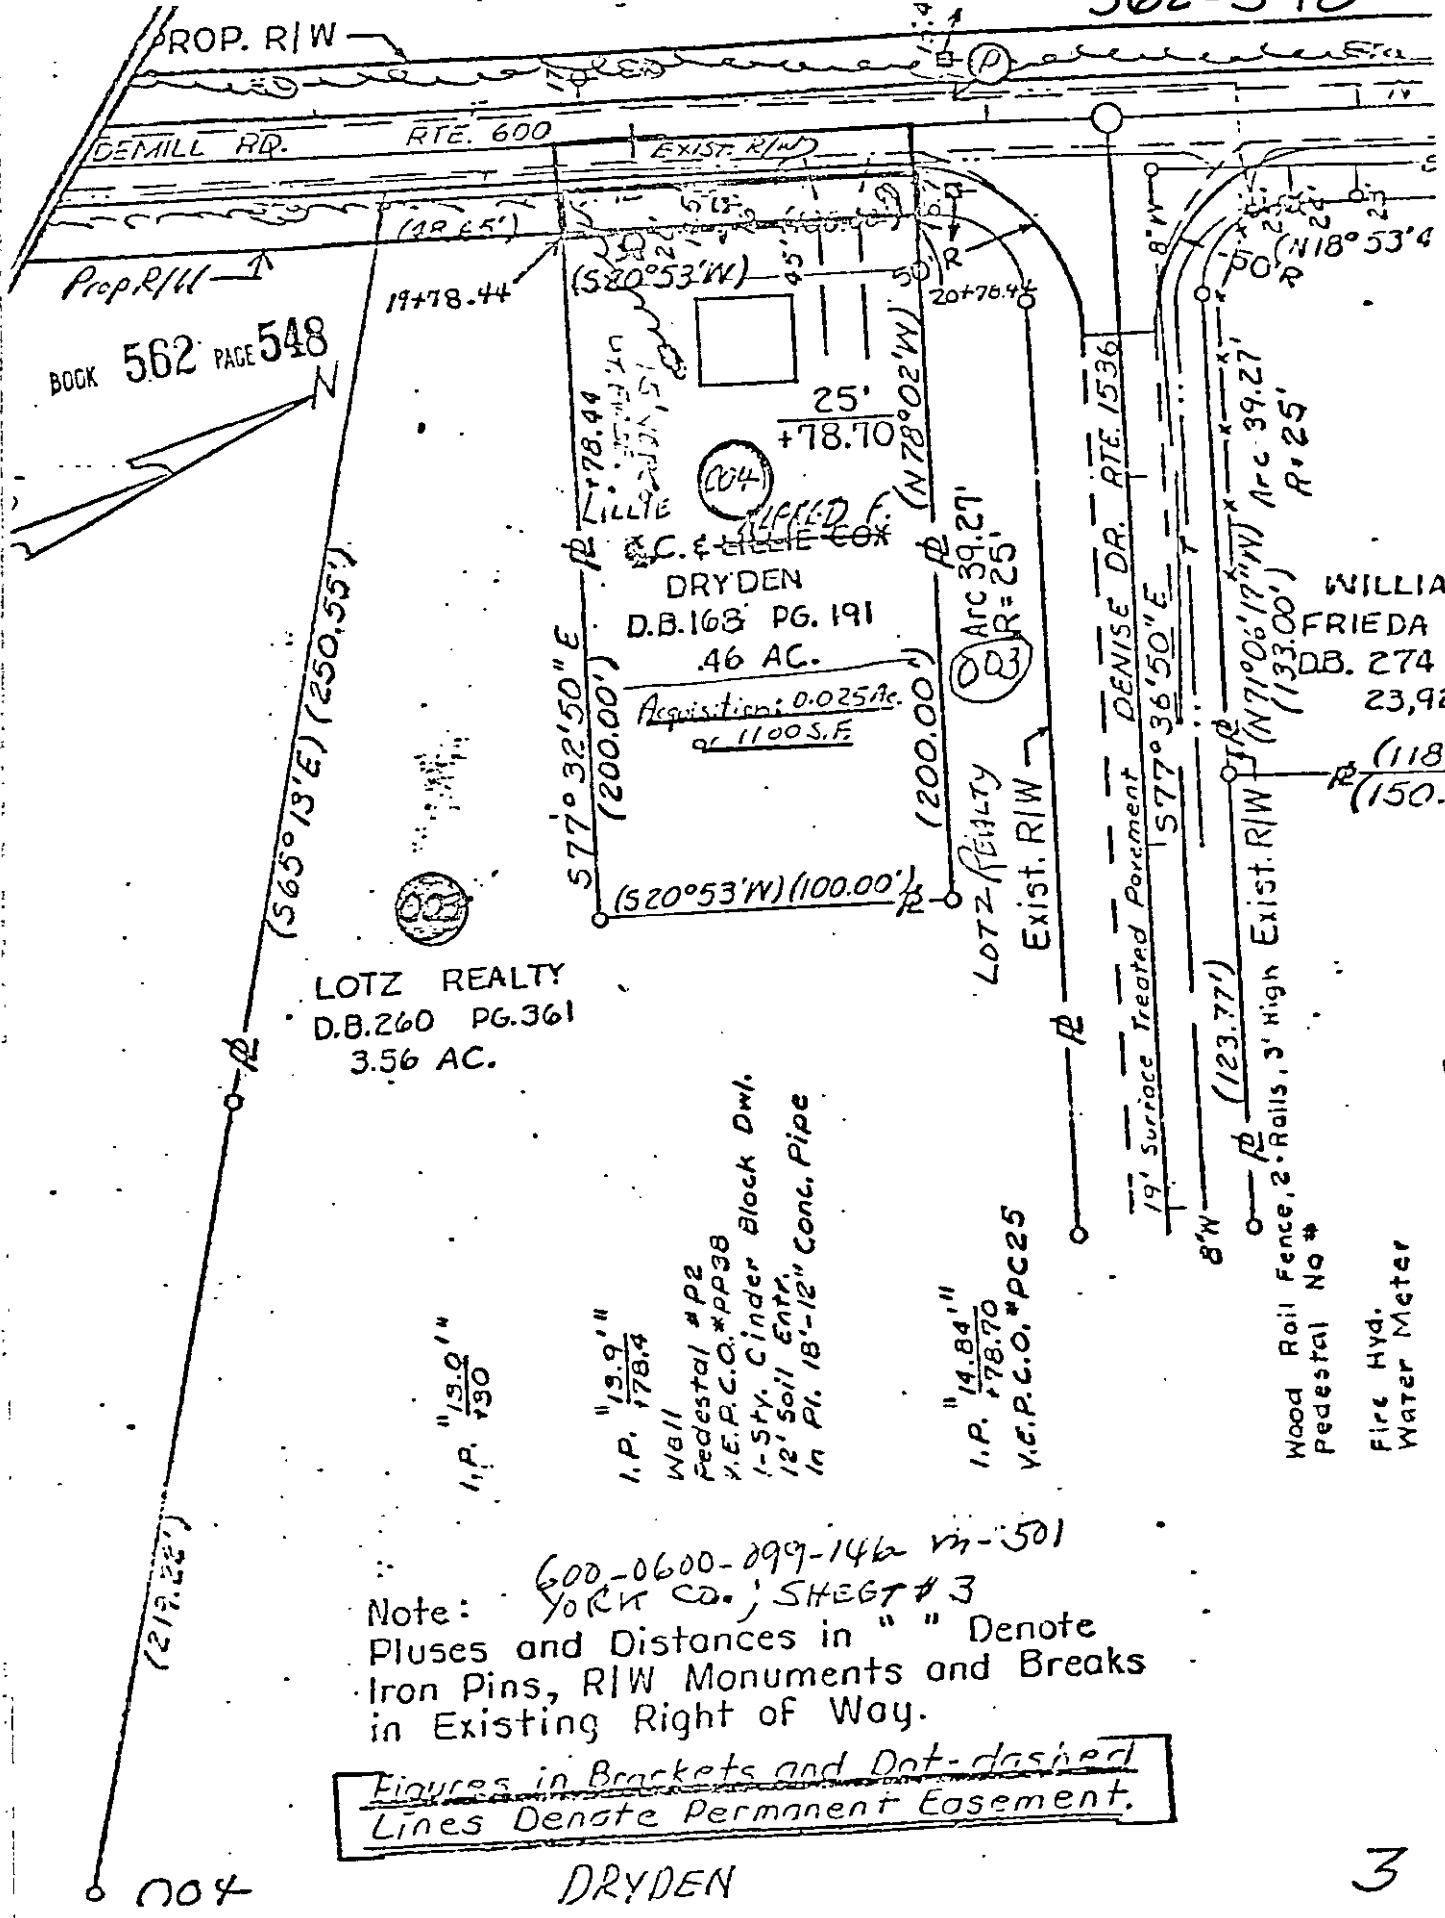 562-548
PROP. R/W
DEMILL RD. RTE. 600
EXIST. R/W
(48.65')
Prop R/W
19+78.44
(S20°53'W)
45'
50'
R
20+78.44
50'R
(N18°53'4
8"W
BOOK 562 PAGE 548
N
25'
+78.70
+78.44
(N78°02'W)
004
LILLIE
ALFRED F.
C. & LILLIE COX
DRYDEN
D.B.168 PG. 191
.46 AC.
Acquisition: 0.025 Ac.
or 1100 S.F.
S77°32'50"E
(200.00')
(200.00')
(S20°53'W)(100.00')
Arc 39.27'
R=25'
003
LOTZ REALTY
Exist. R/W
DENISE DR. RTE. 1536
S77°36'50"E
19' Surface Treated Pavement
8"W
Arc 39.27'
R=25'
(N71°06'17"W)
(133.00')
Exist. R/W
(123.77')
WILLIA
FRIEDA
D.B. 274
23,92
(118
(150.
(S65°13'E) (250.55')
002
LOTZ REALTY
D.B.260 PG.361
3.56 AC.
(219.22')
I.P. "13.0'"
+30
I.P. "13.9'"
+78.4
Wall
Pedestal #P2
V.E.P.C.O. #PP38
1-Sty. Cinder Block Dwl.
12' Soil Entr.
In Pl. 18'-12" Conc. Pipe
I.P. "14.84'"
+78.70
V.E.P.C.O. #PC25
Wood Rail Fence, 2-Rails, 3' High
Pedestal No #
Fire Hyd.
Water Meter
600-0600-099-146 501
YORK CO.; SHEET # 3
Note:
Pluses and Distances in " " Denote
Iron Pins, R/W Monuments and Breaks
in Existing Right of Way.
Figures in Brackets and Dot-dashed
Lines Denote Permanent Easement.
004
DRYDEN
3